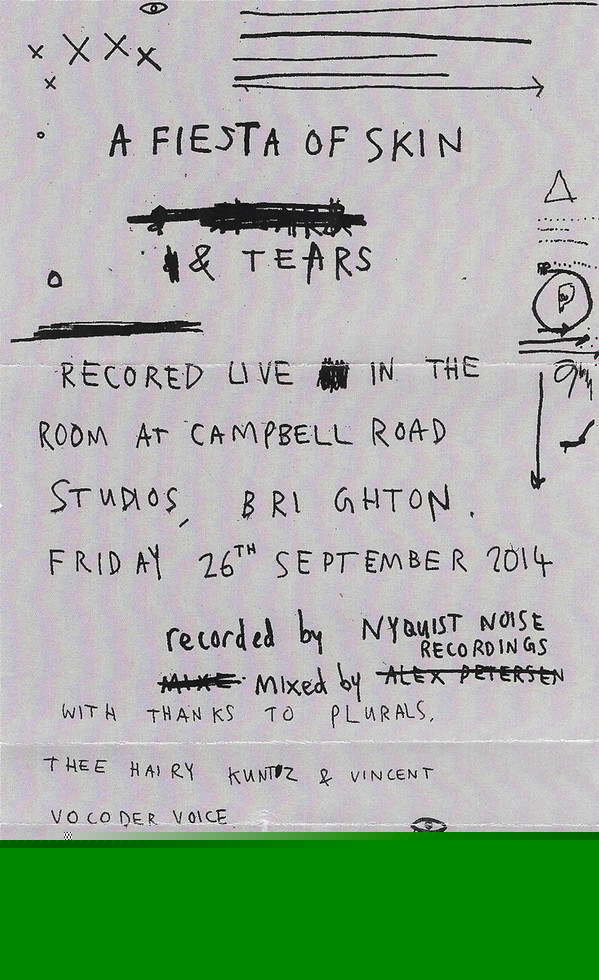 A FIESTA OF SKIN
& TEARS
P
RECORED LIVE IN THE
ROOM AT CAMPBELL ROAD
STUDIOS, BRIGHTON.
FRIDAY 26TH SEPTEMBER 2014
recorded by NYQUIST NOISE
RECORDINGS
MIXE Mixed by ALEX PETERSEN
WITH THANKS TO PLURALS,
THEE HAIRY KUNTZ & VINCENT
VOCODER VOICE